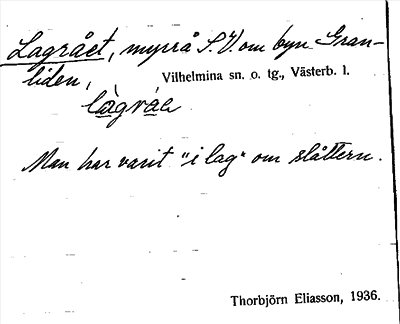 Lagråët, myrrå S.V. om byn Gran-
liden, Vilhelmina sn. o. tg., Västerb. l.
Man har varit "i lag" om slåttern.
Thorbjörn Eliasson, 1936.